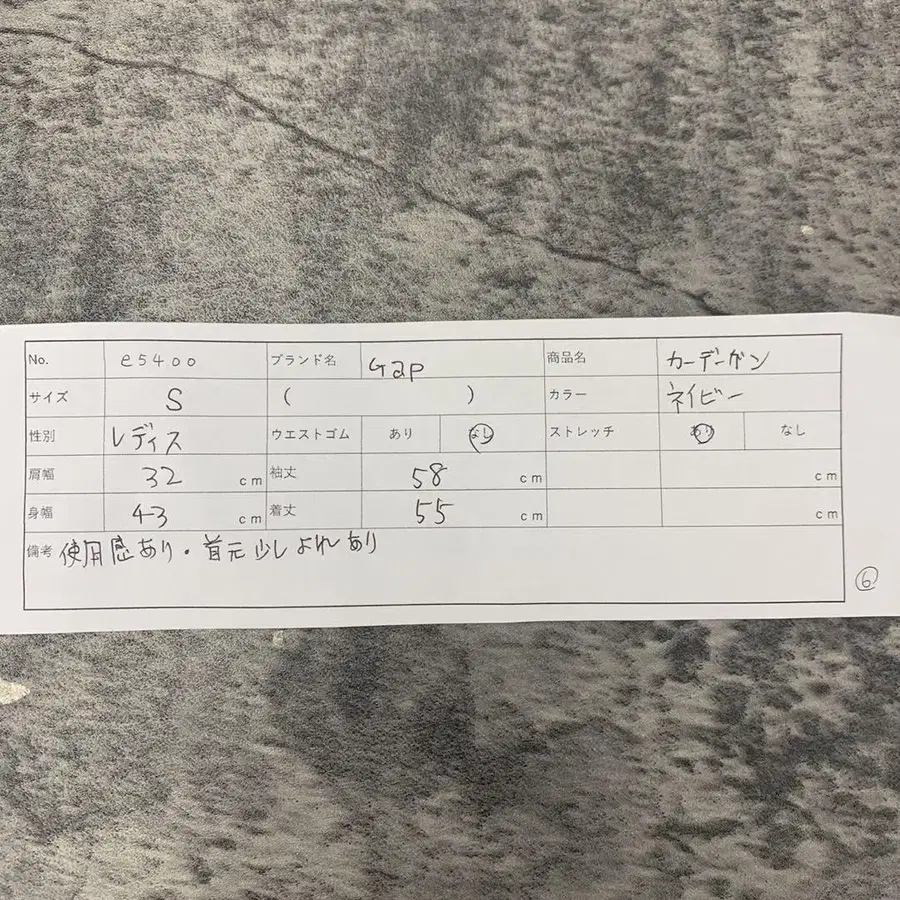 No. e5400 ブランド名 Gap 商品名 カーデーガン
サイズ S ( ) カラー ネイビー
性別 レディス ウエストゴム あり なし ストレッチ あり なし
肩幅 32 cm 袖丈 58 cm cm
身幅 43 cm 着丈 55 cm cm
備考 使用感あり・首元少しよれあり
6